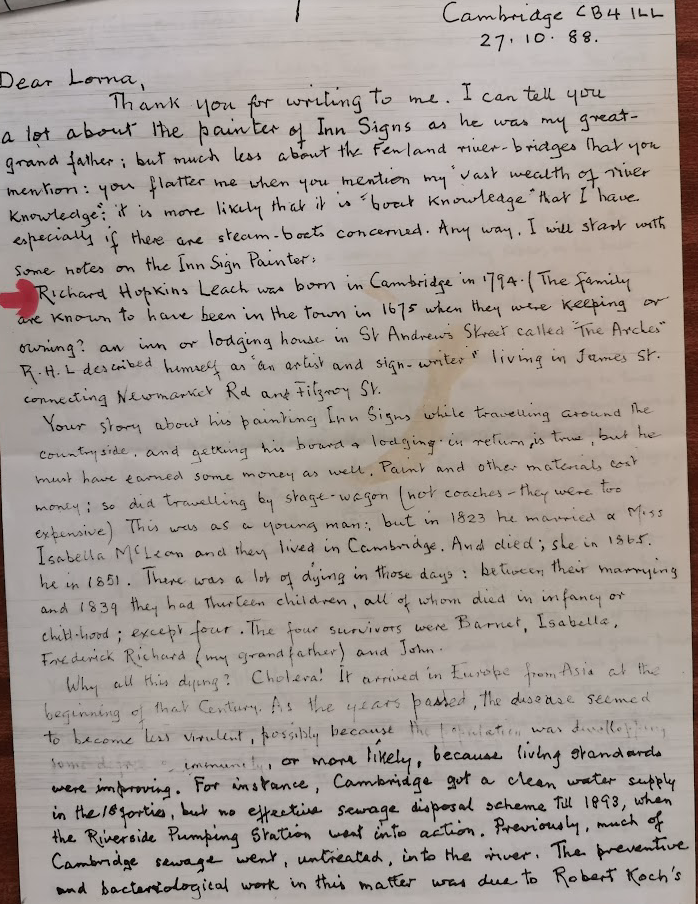 Cambridge CB4 1LL
27.10.88.
Dear Lorna,
Thank you for writing to me. I can tell you
a lot about the painter of Inn Signs as he was my great-
grand father; but much less about the Fenland river-bridges that you
mention: you flatter me when you mention my "vast wealth of river
knowledge": it is more likely that it is "boat knowledge" that I have
especially if there are steam-boats concerned. Any way, I will start with
some notes on the Inn Sign Painter:
Richard Hopkins Leach was born in Cambridge in 1794. (The family
are known to have been in the town in 1675 when they were keeping or
owning? an inn or lodging house in St Andrews Street called "The Arches"
R.H.L described himself as "an artist and sign-writer" living in James St.
connecting Newmarket Rd and Fitzroy St.
Your story about his painting Inn Signs while travelling around the
countryside, and getting his board & lodging in return, is true, but he
must have earned some money as well. Paint and other materials cost
money; so did travelling by stage-wagon (not coaches - they were too
expensive) This was as a young man; but in 1823 he married a Miss
Isabella McLean and they lived in Cambridge. And died; she in 1865.
he in 1851. There was a lot of dying in those days: between their marrying
and 1839 they had thurteen children, all of whom died in infancy or
child-hood; except four. The four survivors were Barnet, Isabella,
Frederick Richard (my grandfather) and John.
Why all this dying? Cholera! It arrived in Europe from Asia at the
beginning of that Century. As the years passed, the disease seemed
to become less virulent, possibly because the population was
some immunity, or more likely, because living standards
were improving. For instance, Cambridge got a clean water supply
in the 18 forties, but no effective sewage disposal scheme till 1893, when
the Riverside Pumping Station went into action. Previously, much of
Cambridge sewage went, untreated, into the river. The preventive
and bacteriological work in this matter was due to Robert Koch's